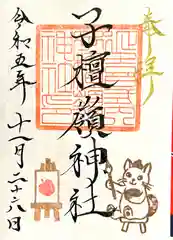 奉拝
子檀嶺神社
令和五年十一月二十六日